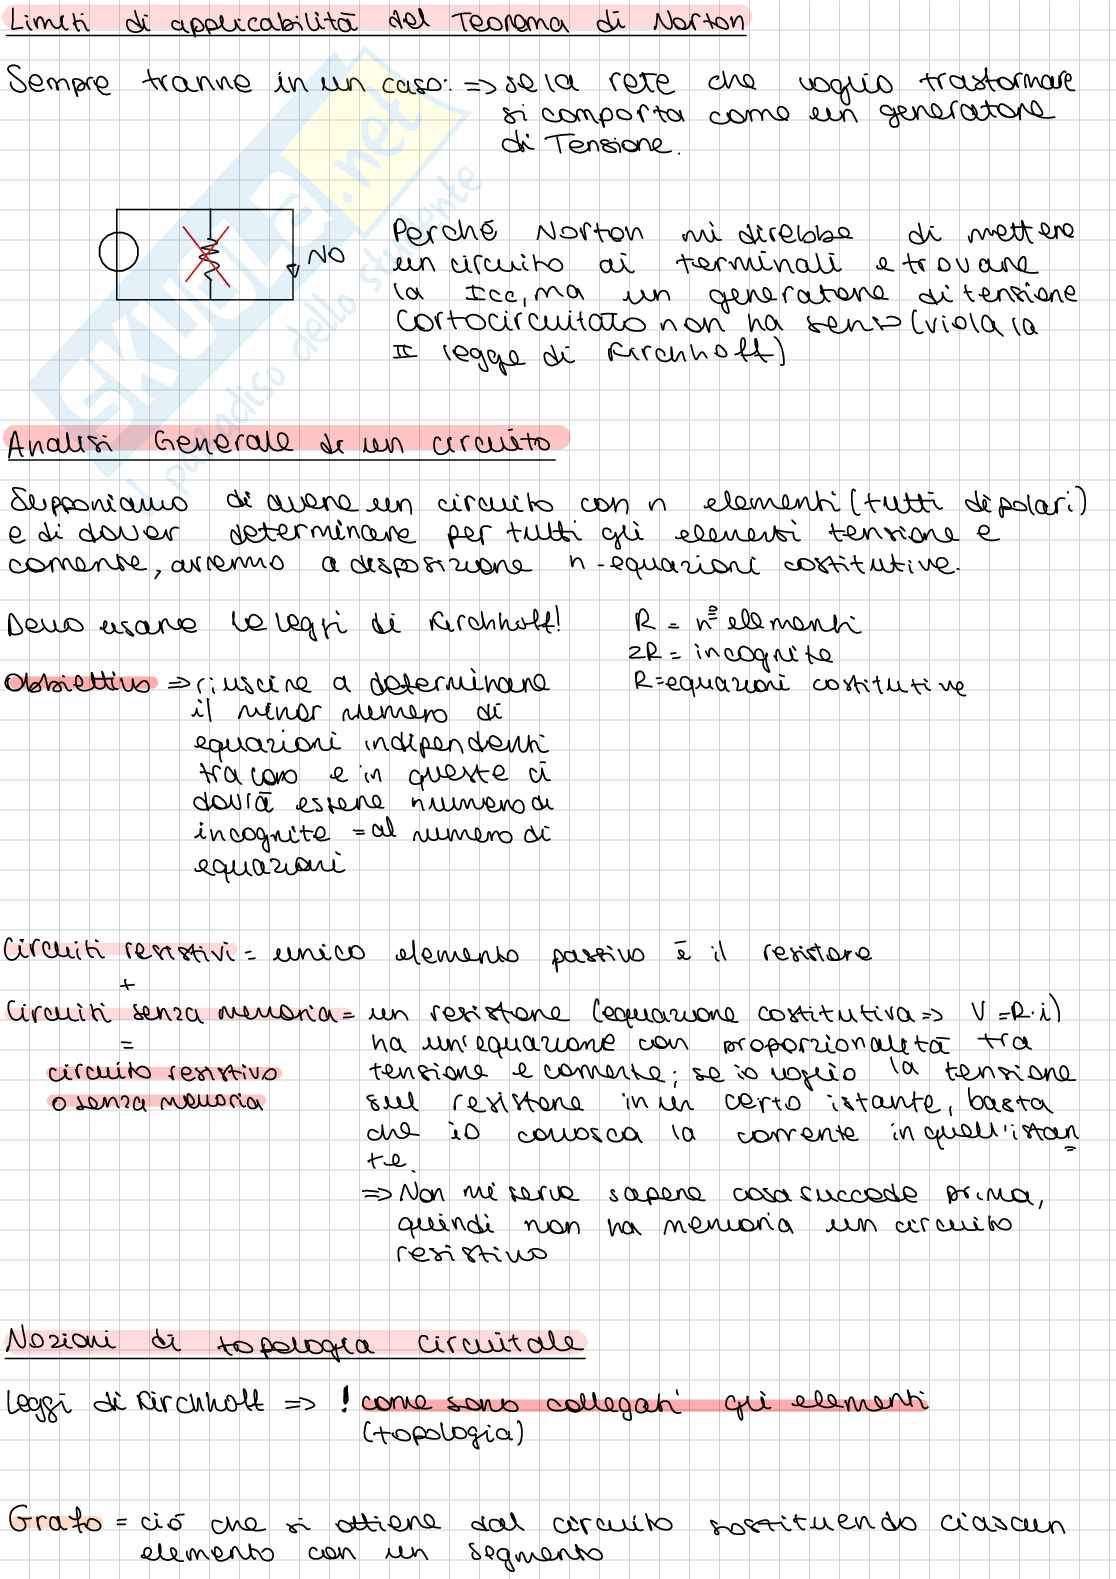 Limiti di applicabilità del Teorema di Norton
Sempre tranne in un caso: => se la rete che voglio trasformare
si comporta come un generatore
di Tensione.
NO
Perché Norton mi direbbe di mettere
un circuito ai terminali e trovare
la Icc, ma un generatore di tensione
cortocircuitato non ha senso (viola la
II legge di Kirchhoff)
Analisi Generale di un circuito
Supponiamo di avere un circuito con n elementi (tutti dipolari)
e di dover determinare per tutti gli elementi tensione e
corrente, avremo a disposizione n-equazioni costitutive.
Devo usare le leggi di Kirchhoff!
R = n° elementi
2R = incognite
R = equazioni costitutive
Obbiettivo => riuscire a determinare
il minor numero di
equazioni indipendenti
tra loro e in queste ci
dovrà essere numero di
incognite = al numero di
equazioni
Circuiti resistivi = unico elemento passivo è il resistore
+
Circuiti senza memoria = un resistore (equazione costitutiva => V=R·i)
ha un'equazione con proporzionalità tra
tensione e corrente; se io voglio la tensione
sul resistore in un certo istante, basta
che io conosca la corrente in quell'istan
te.
=
circuito resistivo
o senza memoria
=> Non mi serve sapere cosa succede prima,
quindi non ha memoria un circuito
resistivo
Nozioni di topologia circuitale
Leggi di Kirchhoff => ! come sono collegati gli elementi
(topologia)
Grafo = ciò che si ottiene dal circuito sostituendo ciascun
elemento con un segmento
SKUOLA.net
il paradiso dello studente